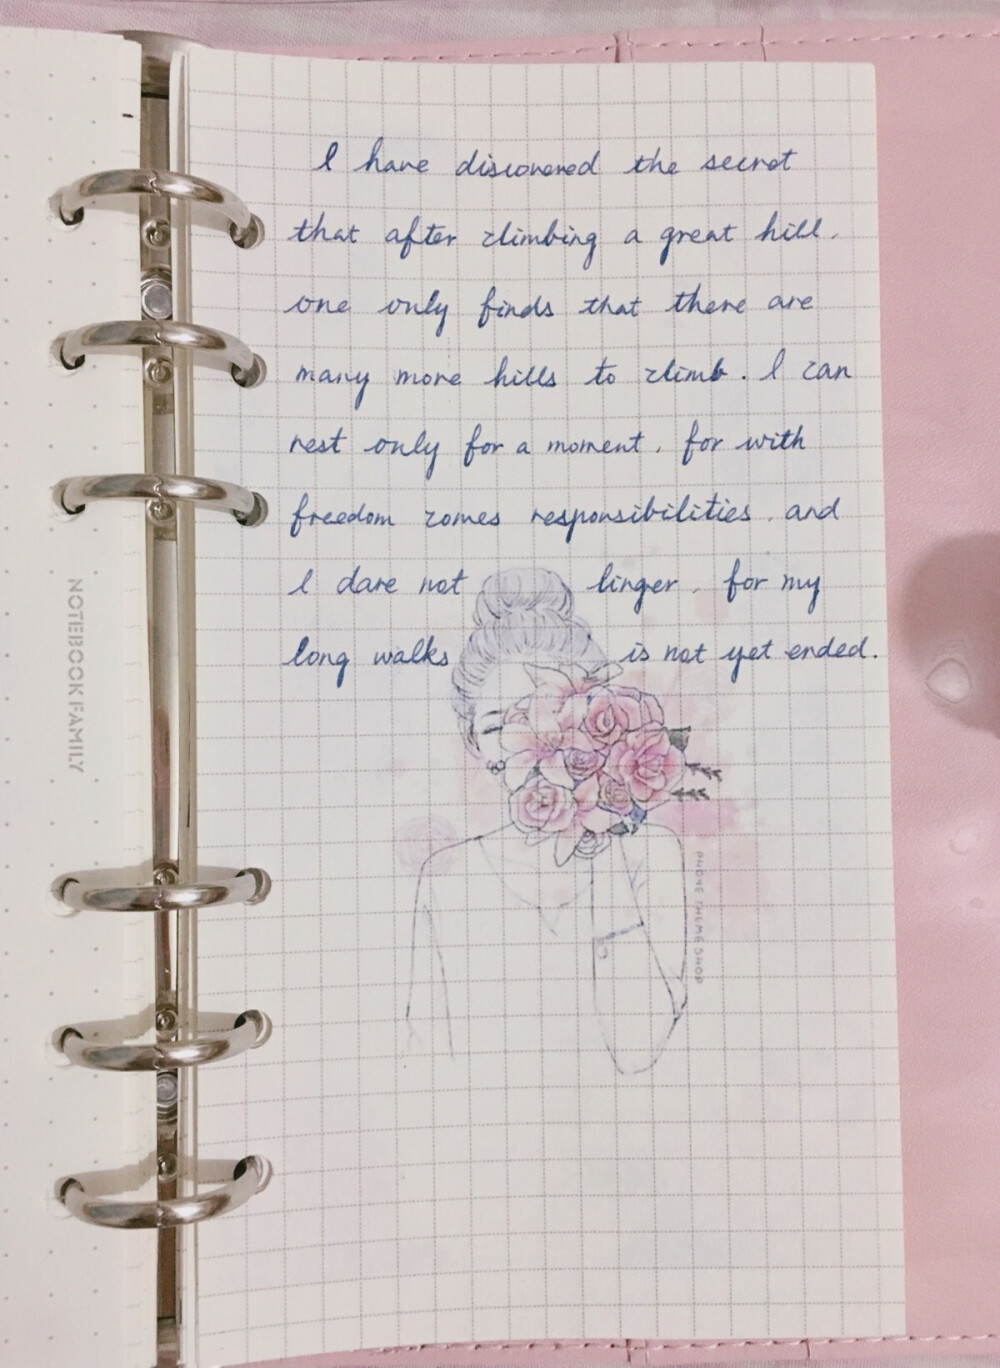 I have discovered the secret
that after climbing a great hill,
one only finds that there are
many more hills to climb. I can
rest only for a moment, for with
freedom comes responsibilities, and
I dare not linger, for my
long walks is not yet ended.
NOTEBOOK FAMILY
PHONE THEME SHOP